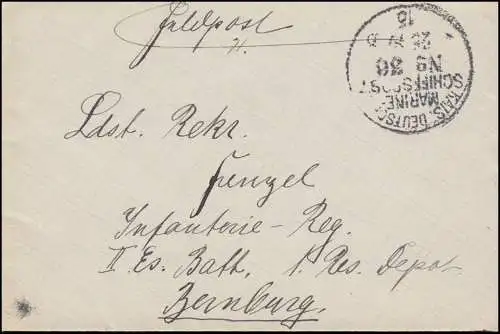 Feldpost
KAIS. DEUTSCHE
MARINE-
SCHIFFSPOST
No 36
15
Ldst. Rekr.
Funzel
Infanterie-Reg.
II Es. Batt. 1. Res. Depot
Bernburg.